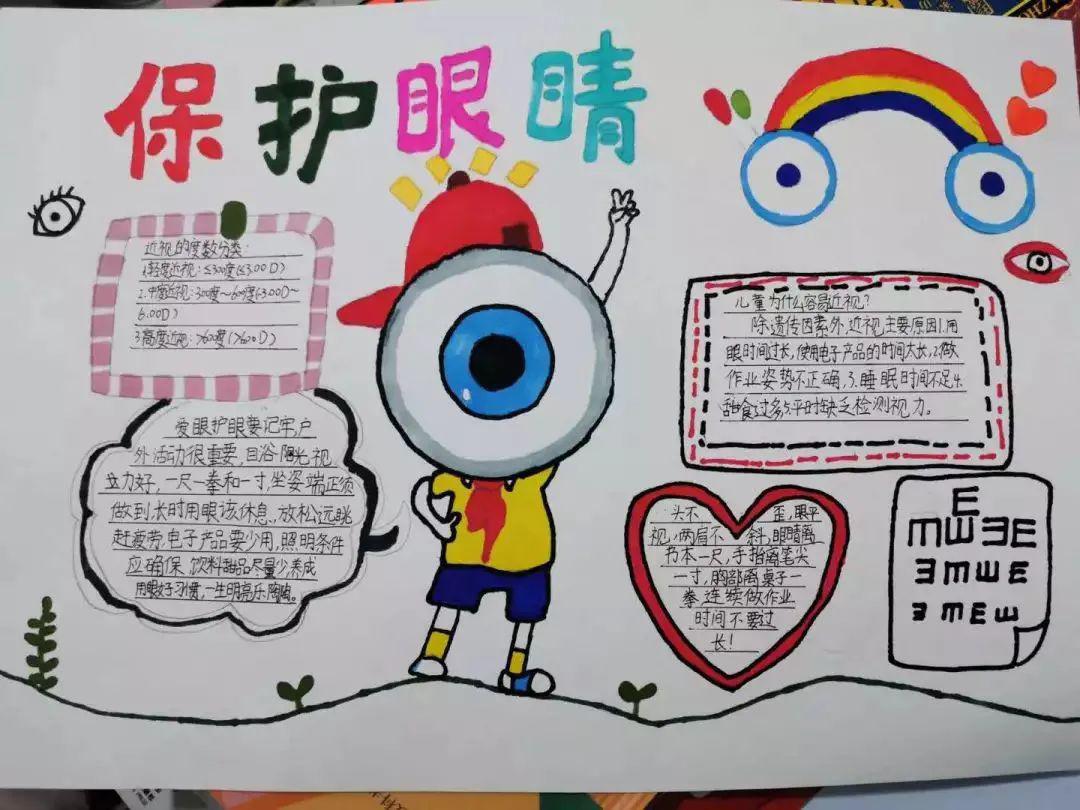 保护眼睛
近视的度数分类:
1.轻度近视:≤300度(≤3.00D)
2.中度近视:300度~600度(3.00D~
6.00D)
3.高度近视:>600度(>6.00D)
爱眼护眼要记牢户
外活动很重要,目浴阳光视
立力好,一尺一拳和一寸,坐姿端正须
做到,长时用眼该休息,放松远眺
赶疲劳,电子产品要少用,照明条件
应确保,饮料甜品尽量少,养成
用眼好习惯,一生明亮乐陶陶。
儿童为什么容易近视?
除遗传因素外,近视主要原因1.用
眼时间过长,使用电子产品的时间太长,2.做
作业姿势不正确,3.睡眠时间不足4.
甜食过多5.平时缺乏检测视力。
头不歪,眼平
视,两肩不斜,眼睛离
书本一尺,手指离笔尖
一寸,胸部离桌子一
拳,连续做作业
时间不要过
长!
E
mwƎE
ƎmwE
ƎmEw